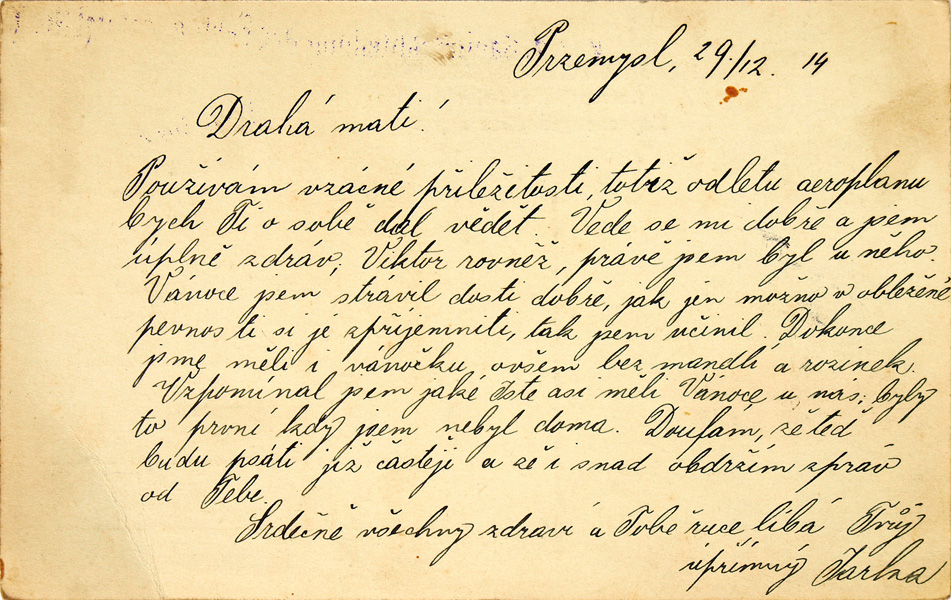 Przemysl, 29./12. 14
Drahá matí!
Používám vzácné příležitosti, totiž odletu aeroplanu
bych Ti o sobě dal vědět. Vede se mi dobře a jsem
úplně zdráv, Viktor rovněž, právě jsem byl u něho.
Vánoce jsem strávil dosti dobře, jak jen možno v obležené
pevnosti si je zpříjemniti, tak jsem učinil. Dokonce
jsme měli i vánočku, ovšem bez mandlí a rozinek.
Vzpomínal jsem jaké jste asi měli Vánoce u nás; byly
to první kdy jsem nebyl doma. Doufám, že teď
budu psáti již častěji a že i snad obdržím zpráv
od Tebe.
Srdečně všechny zdraví a Tobě ruce líbá Tvůj
upřímný Jarka